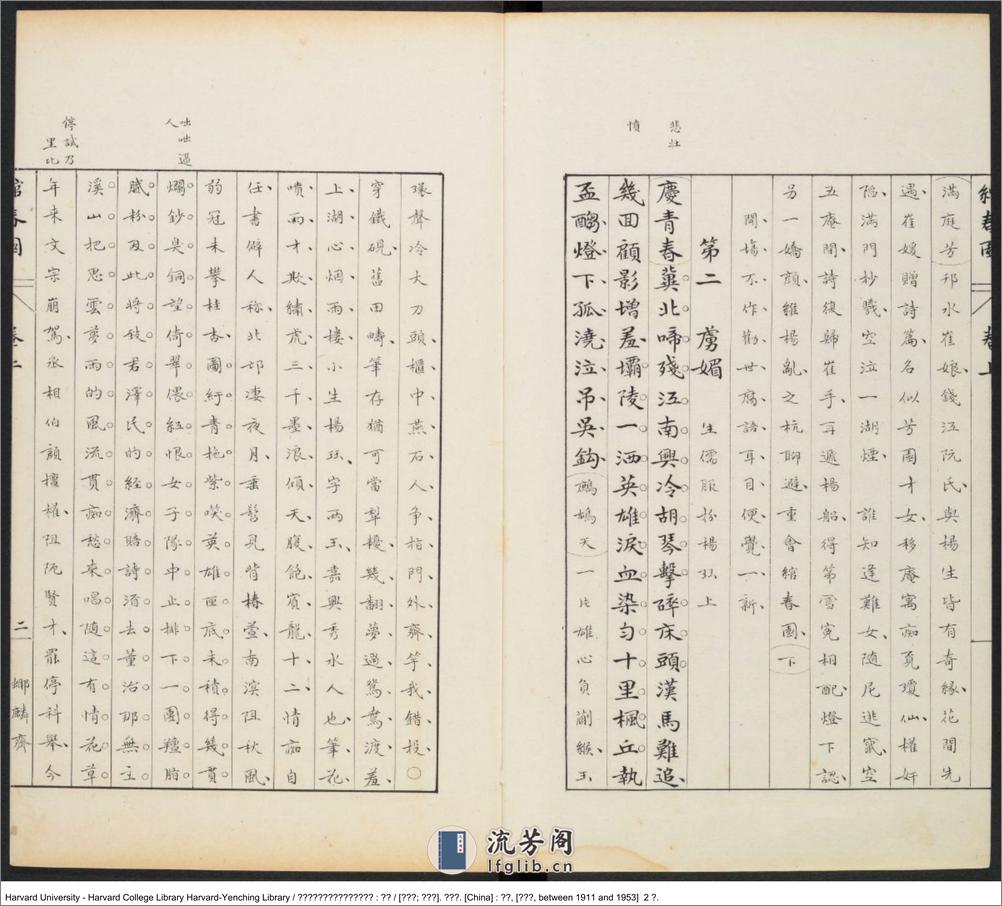 悲壯
憤
綰春園 卷上
滿庭芳邗水崔娘錢江阮氏與楊生皆有奇緣花間先
遇崔媛贈詩篇名似芳園才女移庵寓痴覓瓊仙權奸
陷滿門抄戮空泣一湖煙誰知逢難女隨尼逃竄空
五庵間詩後歸崔手再遞楊船得第雪冤相配燈下認
另一嬌顏維楊亂之杭聊避重會綰春園下
開場不作勸世腐語耳目便覺一新
第二 虜媚 生儒服扮楊珏上
慶青春冀北啼殘江南興冷胡琴擊碎床頭漢馬難追
幾回顧影增羞壩陵一洒英雄淚血染勻十里楓丘執
盃酌燈下孤澆泣吊吳鈎鷓鴣天一片雄心負蒯緱玉
環聲冷大刀頭櫃中燕石人争指門外齊竽我錯投○
穿鐵硯舊田疇筆存猶可當犁耰幾翻夢過鴛鴦渡羞
上湖心烟雨樓小生楊珏字兩玉嘉興秀水人也筆花
噴雨才欺繡虎三千墨浪傾天腹飽賓龍十二情痴自
任書僻人称北邙凄夜月垂髫見背椿萱南濱阻秋風
弱冠未攀桂杏圖紆青拖紫嘆英雄匣底未積得幾貫
爛鈔臭銅望倚翠偎紅恨女子隊中止排下一團羶脂
膩粉及此將致君澤民的經濟賂詩酒去董治那無主
溪山把思雲夢雨的風流貫痴愁來唱隨這有情花草
年來文宗崩駕丞相伯顏擅權阻阨賢才罷停科舉今
咄咄逼
人
停試乃
里比
綰春園 卷上 二 娜嬛齋
流芳阁
lfglib.cn
Harvard University - Harvard College Library Harvard-Yenching Library / ??????????????? : ?? / [???; ???]. ???. [China] : ??, [???, between 1911 and 1953] 2 ?.